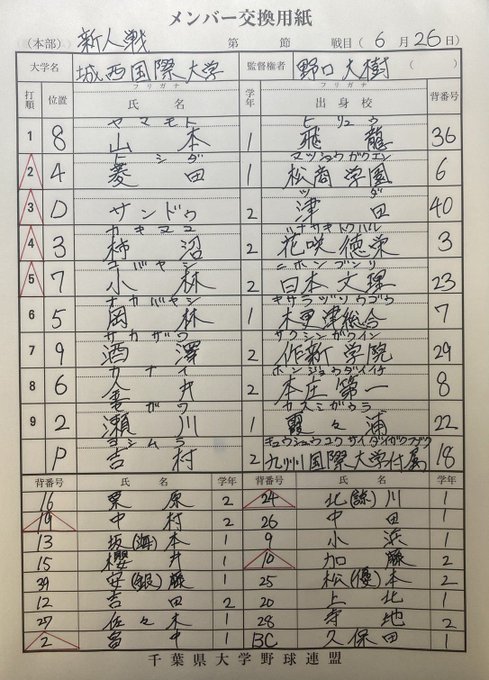 メンバー交換用紙
(本部) 新人戦 第 節 戦目(6月26日)
大学名 城西国際大学 監督権者 フリガナ 野口大樹 ( )
打順 位置 フリガナ 氏名 学年 フリガナ 出身校 背番号
1 8 ヤマモト 山本 1 ヒリュウ 飛龍 36
2 4 ヒシダ 菱田 1 マツショウガクエン 松商学園 6
3 D サンドウ 2 ツダ 津田 40
4 3 カキヌマ 柿沼 2 ハナサキトクハル 花咲徳栄 3
5 7 コバヤシ 小林 2 ニホンブンリ 日本文理 23
6 5 岡林 1 キサラヅソウゴウ 木更津総合 7
7 9 サカザワ 酒澤 2 サクシンガクイン 作新学院 29
8 6 カナイ 金井 2 ホンジョウダイイチ 本庄第一 8
9 2 セガワ 瀬川 1 カスミガウラ 霞ヶ浦 22
P ヨシムラ 吉村 2 九州国際大学付属 18
背番号 氏名 学年 背番号 氏名 学年
16 栗原 2 24 北(諒)川 1
19 中村 2 26 中田 1
13 坂(海)本 1 9 小浜 1
15 櫻井 1 10 加藤 2
39 安(銀)藤 1 25 松(優)本 2
12 吉田 2 20 上北 1
27 佐々木 1 28 寺地 2
2 畠中 1 BC 久保田 1
千葉県大学野球連盟